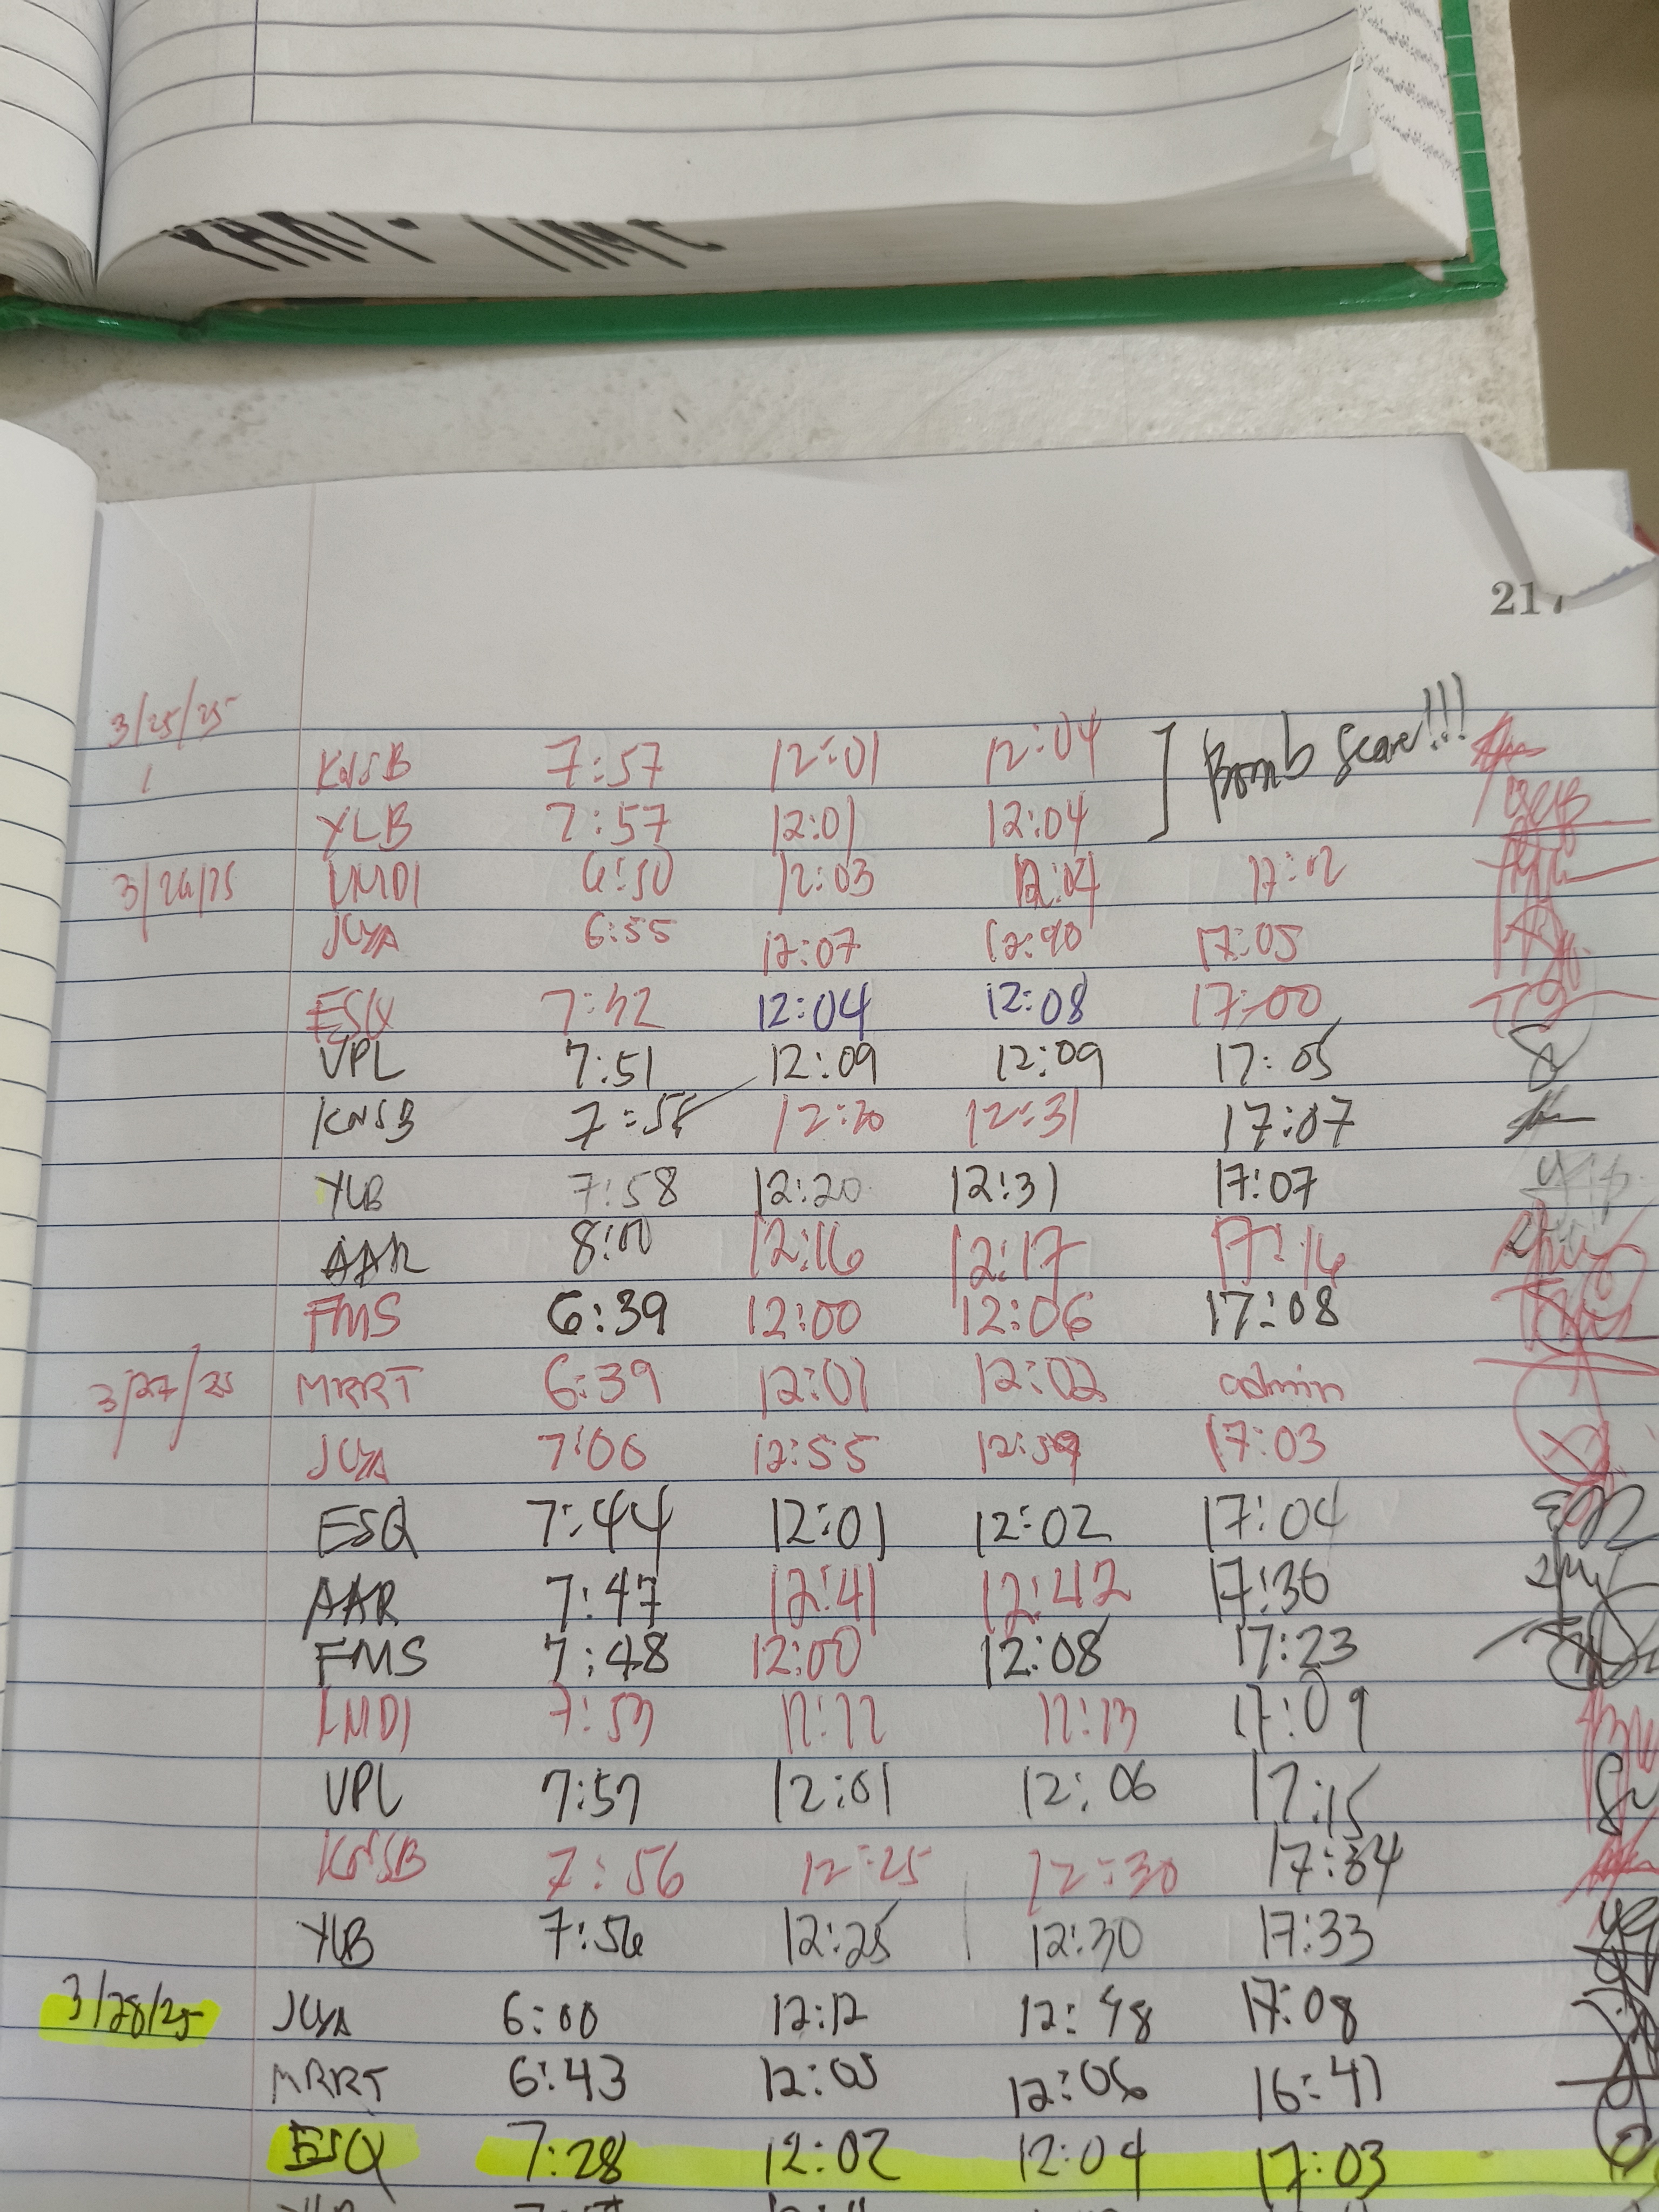 PHAR. TIME
217
3/25/25
KNSB 7:57 12:01 12:04 Bomb Scare!!!
YLB 7:57 12:01 12:04
3/26/25 LMDI 6:50 12:03 12:04 17:02
JCYA 6:55 12:07 12:40 17:05
ESQ 7:42 12:04 12:08 17:00
VPL 7:51 12:09 12:09 17:05
KNSB 12:20 12:31 17:07
YLB 7:58 12:20 12:31 17:07
AAR 8:00 12:16 12:17 17:16
FMS 6:39 12:00 12:06 17:08
3/27/25 MRRT 6:39 12:01 12:02 admin
JCYA 7:00 12:55 12:59 17:03
ESQ 7:44 12:01 12:02 17:04
AAR 7:47 12:41 12:42 17:36
FMS 7:48 12:00 12:08 17:23
LMDI 7:53 12:12 12:13 17:09
VPL 7:57 12:01 12:06 17:15
KNSB 7:56 12:25 12:30 17:34
YLB 7:56 12:25 12:30 17:33
3/28/25 JCYA 6:00 12:12 12:48 17:08
MRRT 6:43 12:05 12:06 16:41
ESQ 7:28 12:02 12:04 17:03